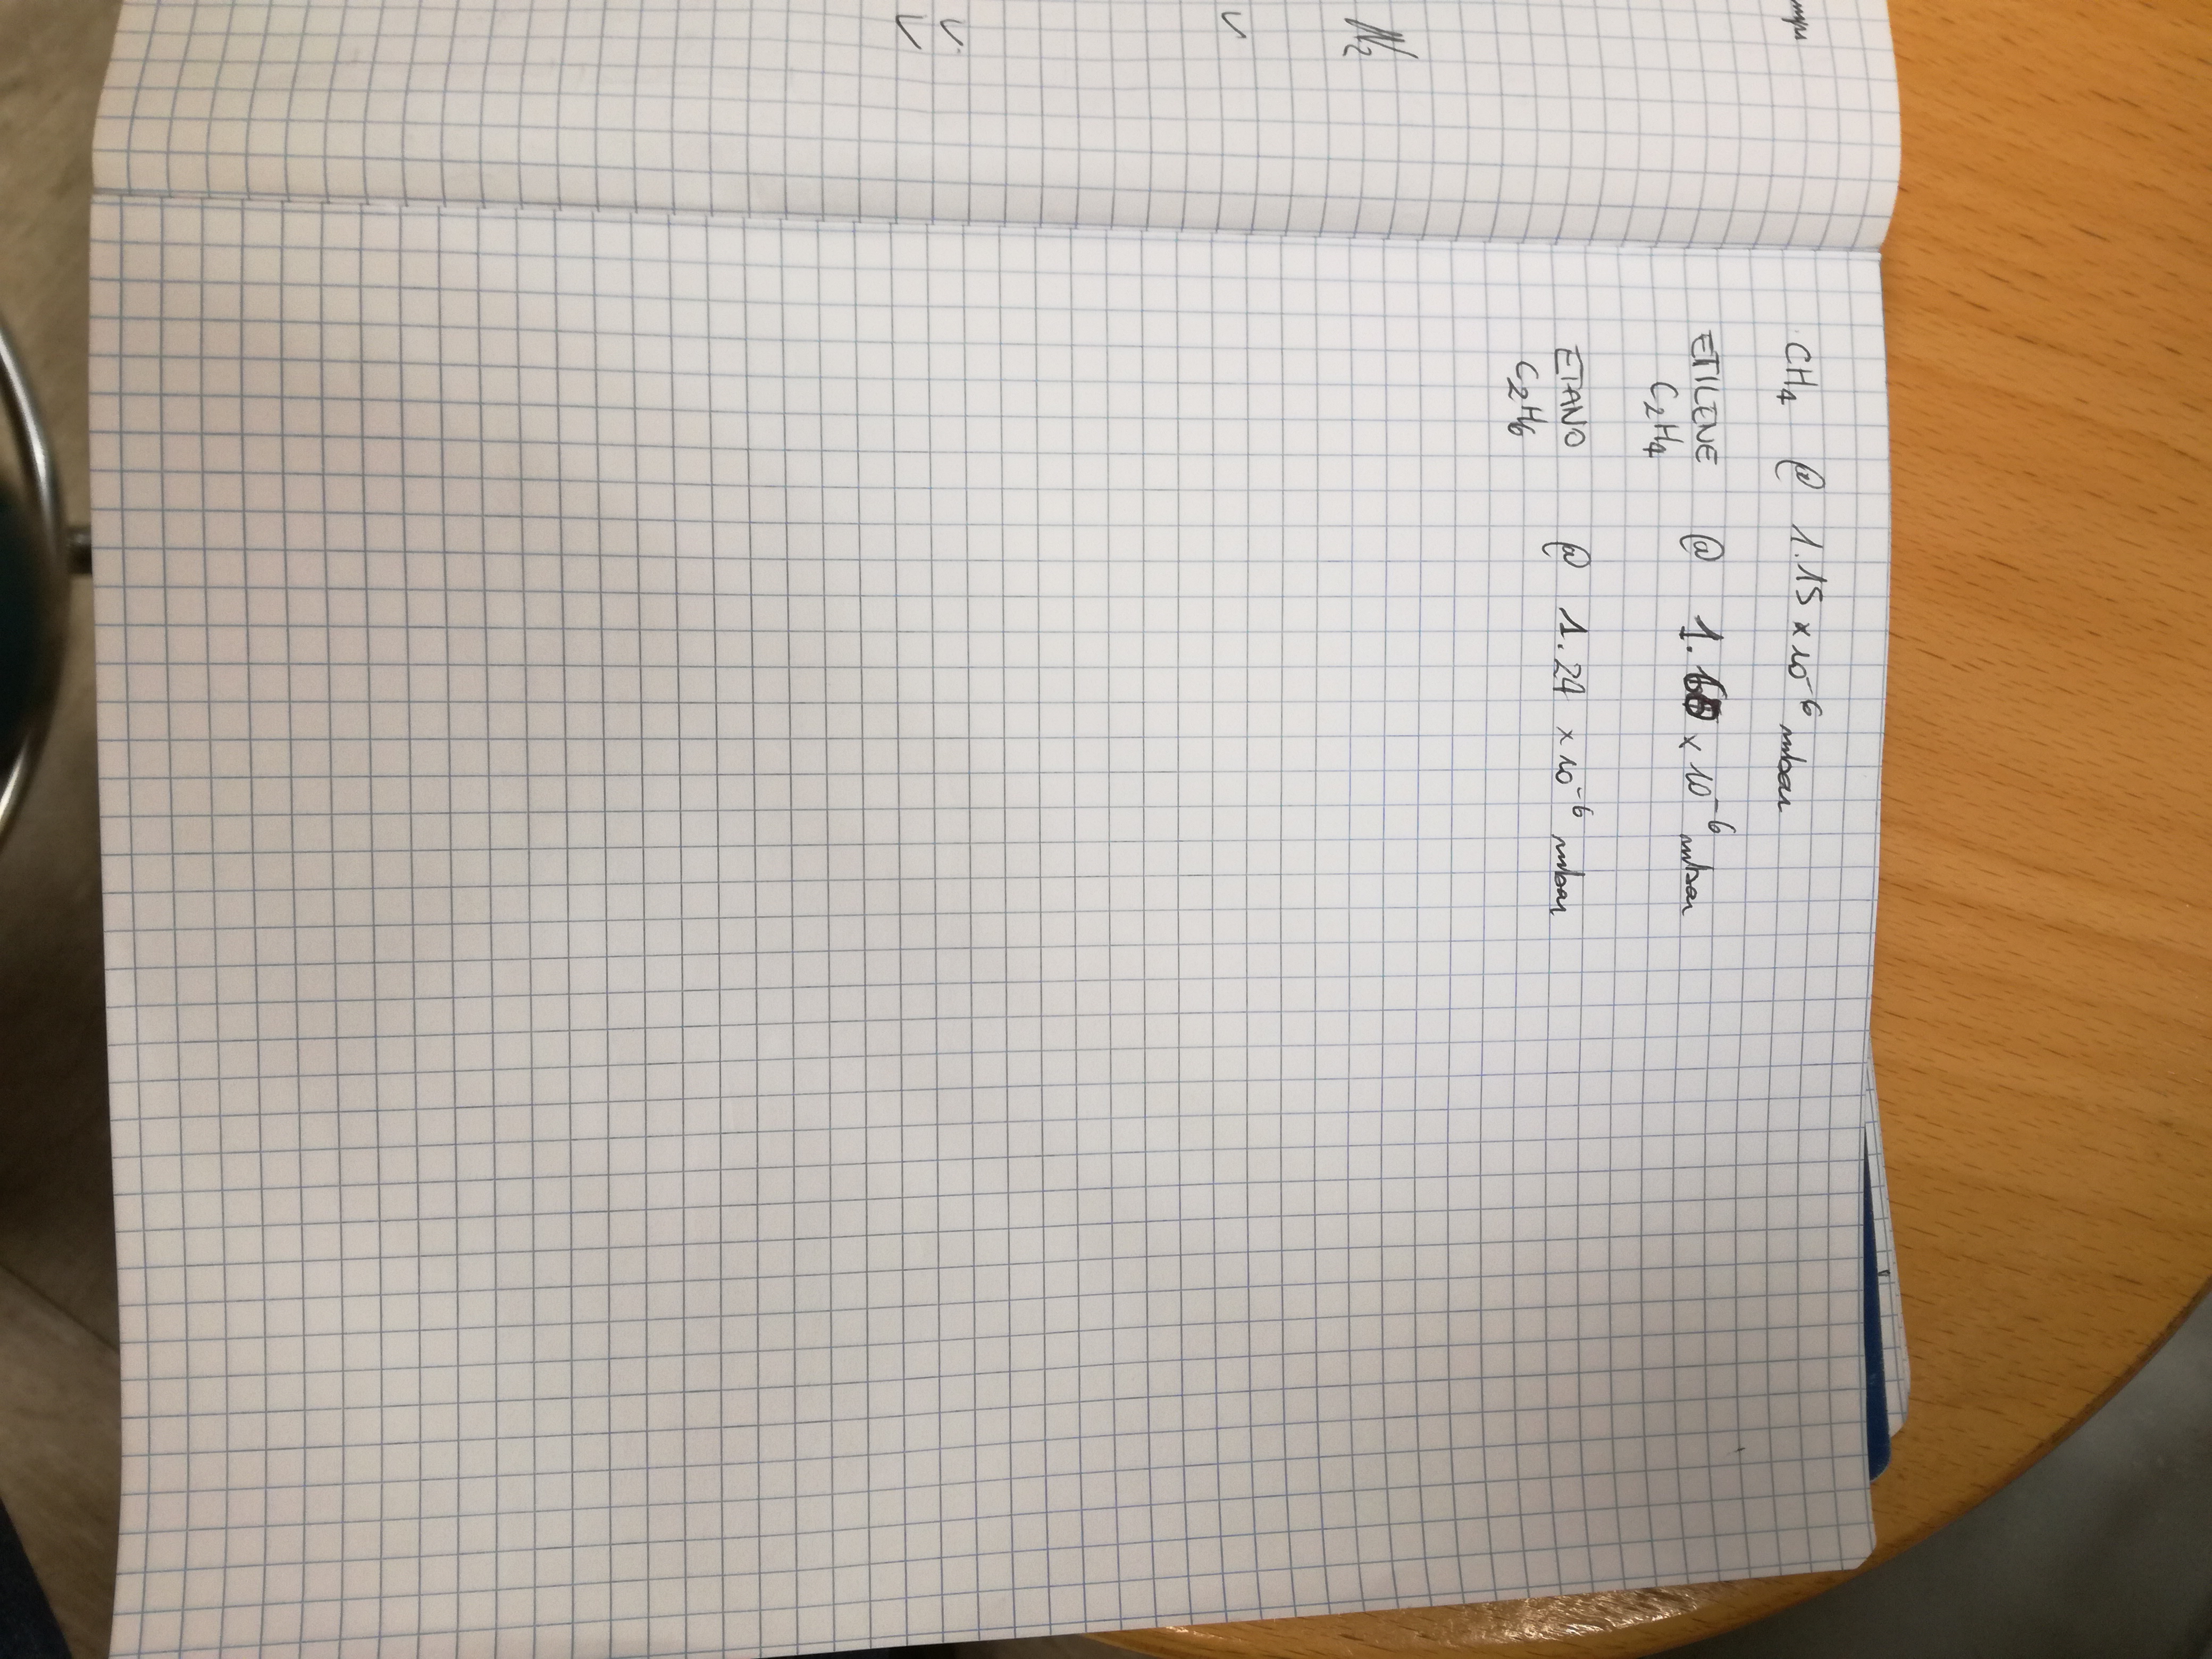 N2
CH4 @ 1.15 x 10^-6 mbar
ETILENE @ 1. x 10^-6 mbar
C2H4
ETANO @ 1.24 x 10^-6 mbar
C2H6